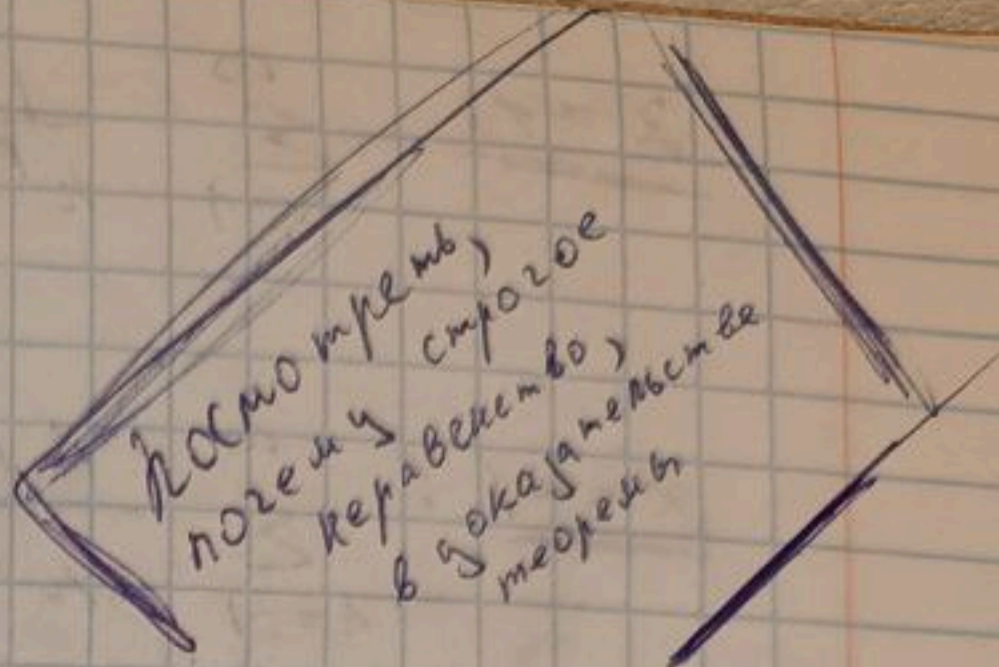 Посмотреть,
почему строгое
неравенство,
в доказательстве
теоремы